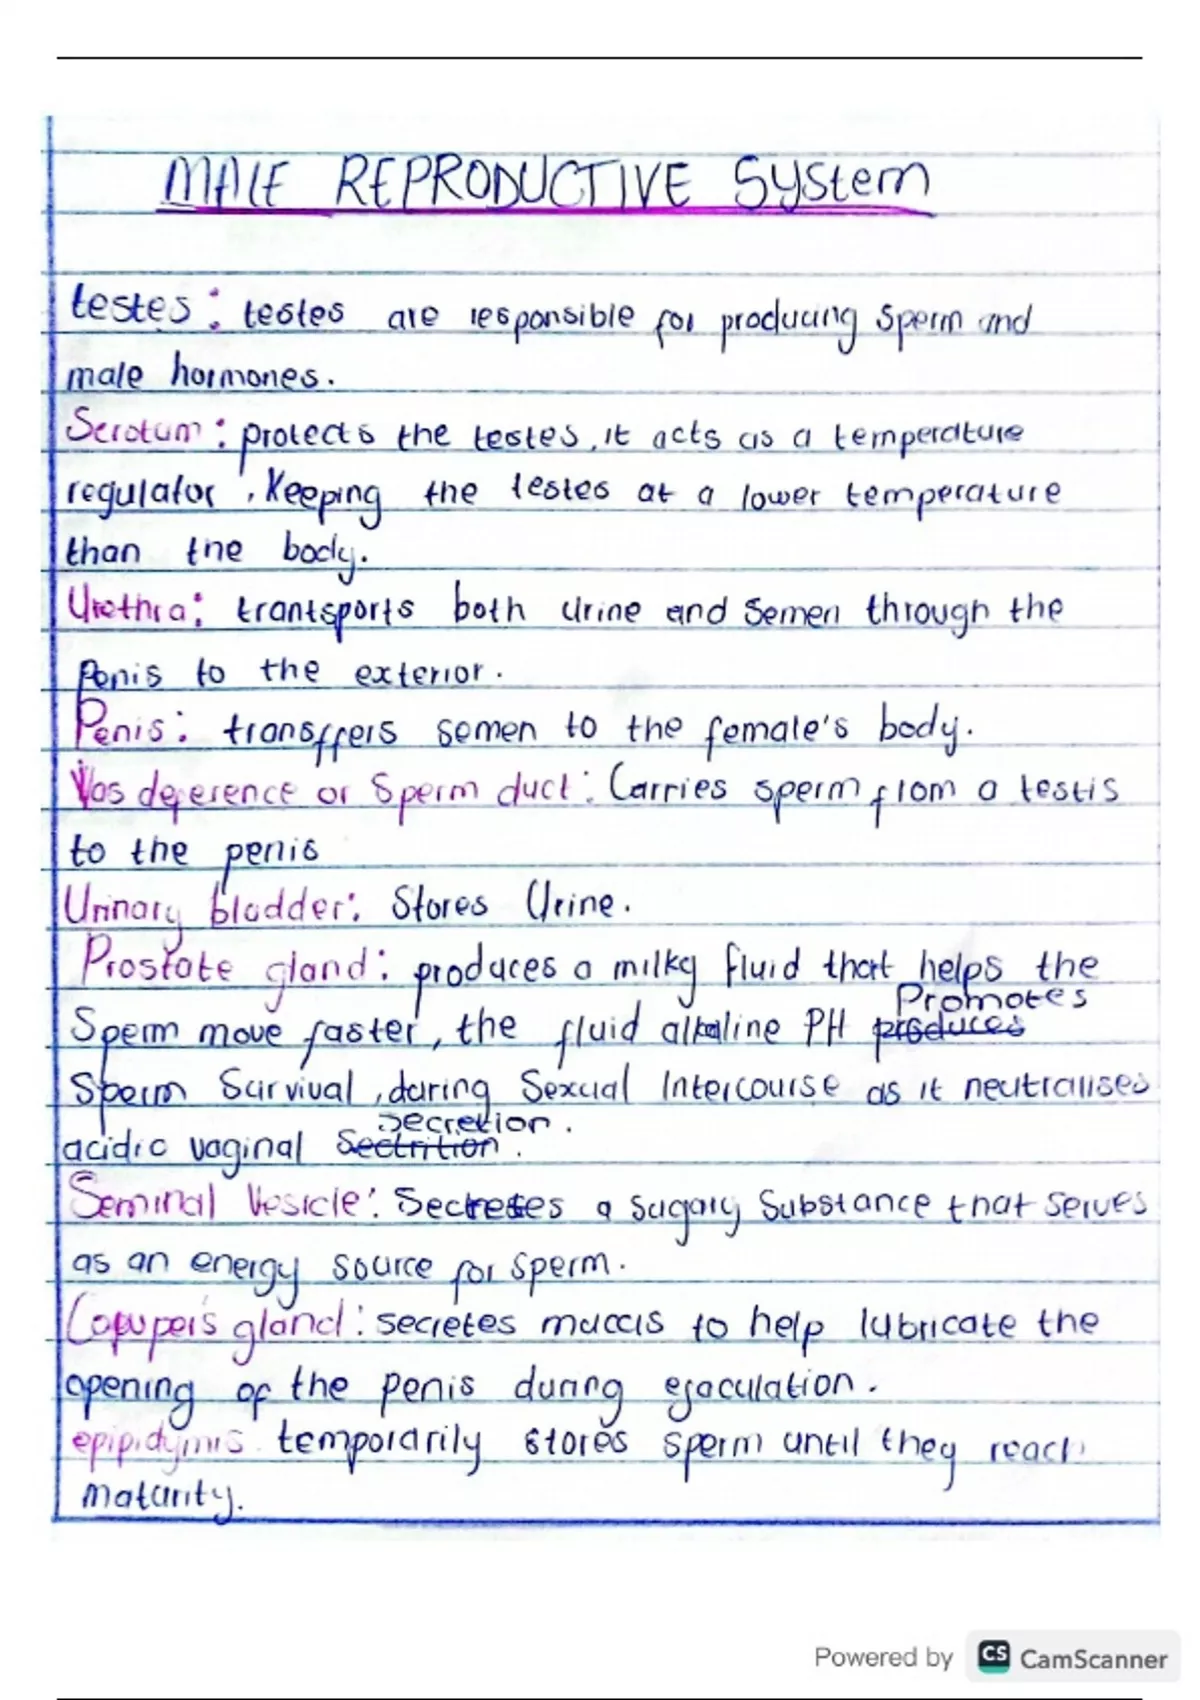 MALE REPRODUCTIVE System
testes: testes are responsible for producing sperm and
male hormones.
Scrotum: protects the testes, it acts as a temperature
regulator, Keeping the testes at a lower temperature
than the body.
Urethra: trantsports both urine and semen through the
Penis to the exterior.
Penis: transffers semen to the female's body.
Vas deference or Sperm duct: Carries sperm from a testis
to the penis
Urinary bladder: Stores Urine.
Prostate gland: produces a milky fluid that helps the
Promotes
Sperm move faster, the fluid alkaline PH produces
Sperm Survival, during Sexual Intercourse as it neutralises
secretion.
acidic vaginal Sectrition.
Seminal Vesicle: Secretes a sugary Substance that serves
as an energy source for sperm.
Copuper's gland: secretes muccis to help lubricate the
opening of the penis during ejaculation.
epipidymis temporarily stores sperm until they reach
maturity.
Powered by CS CamScanner